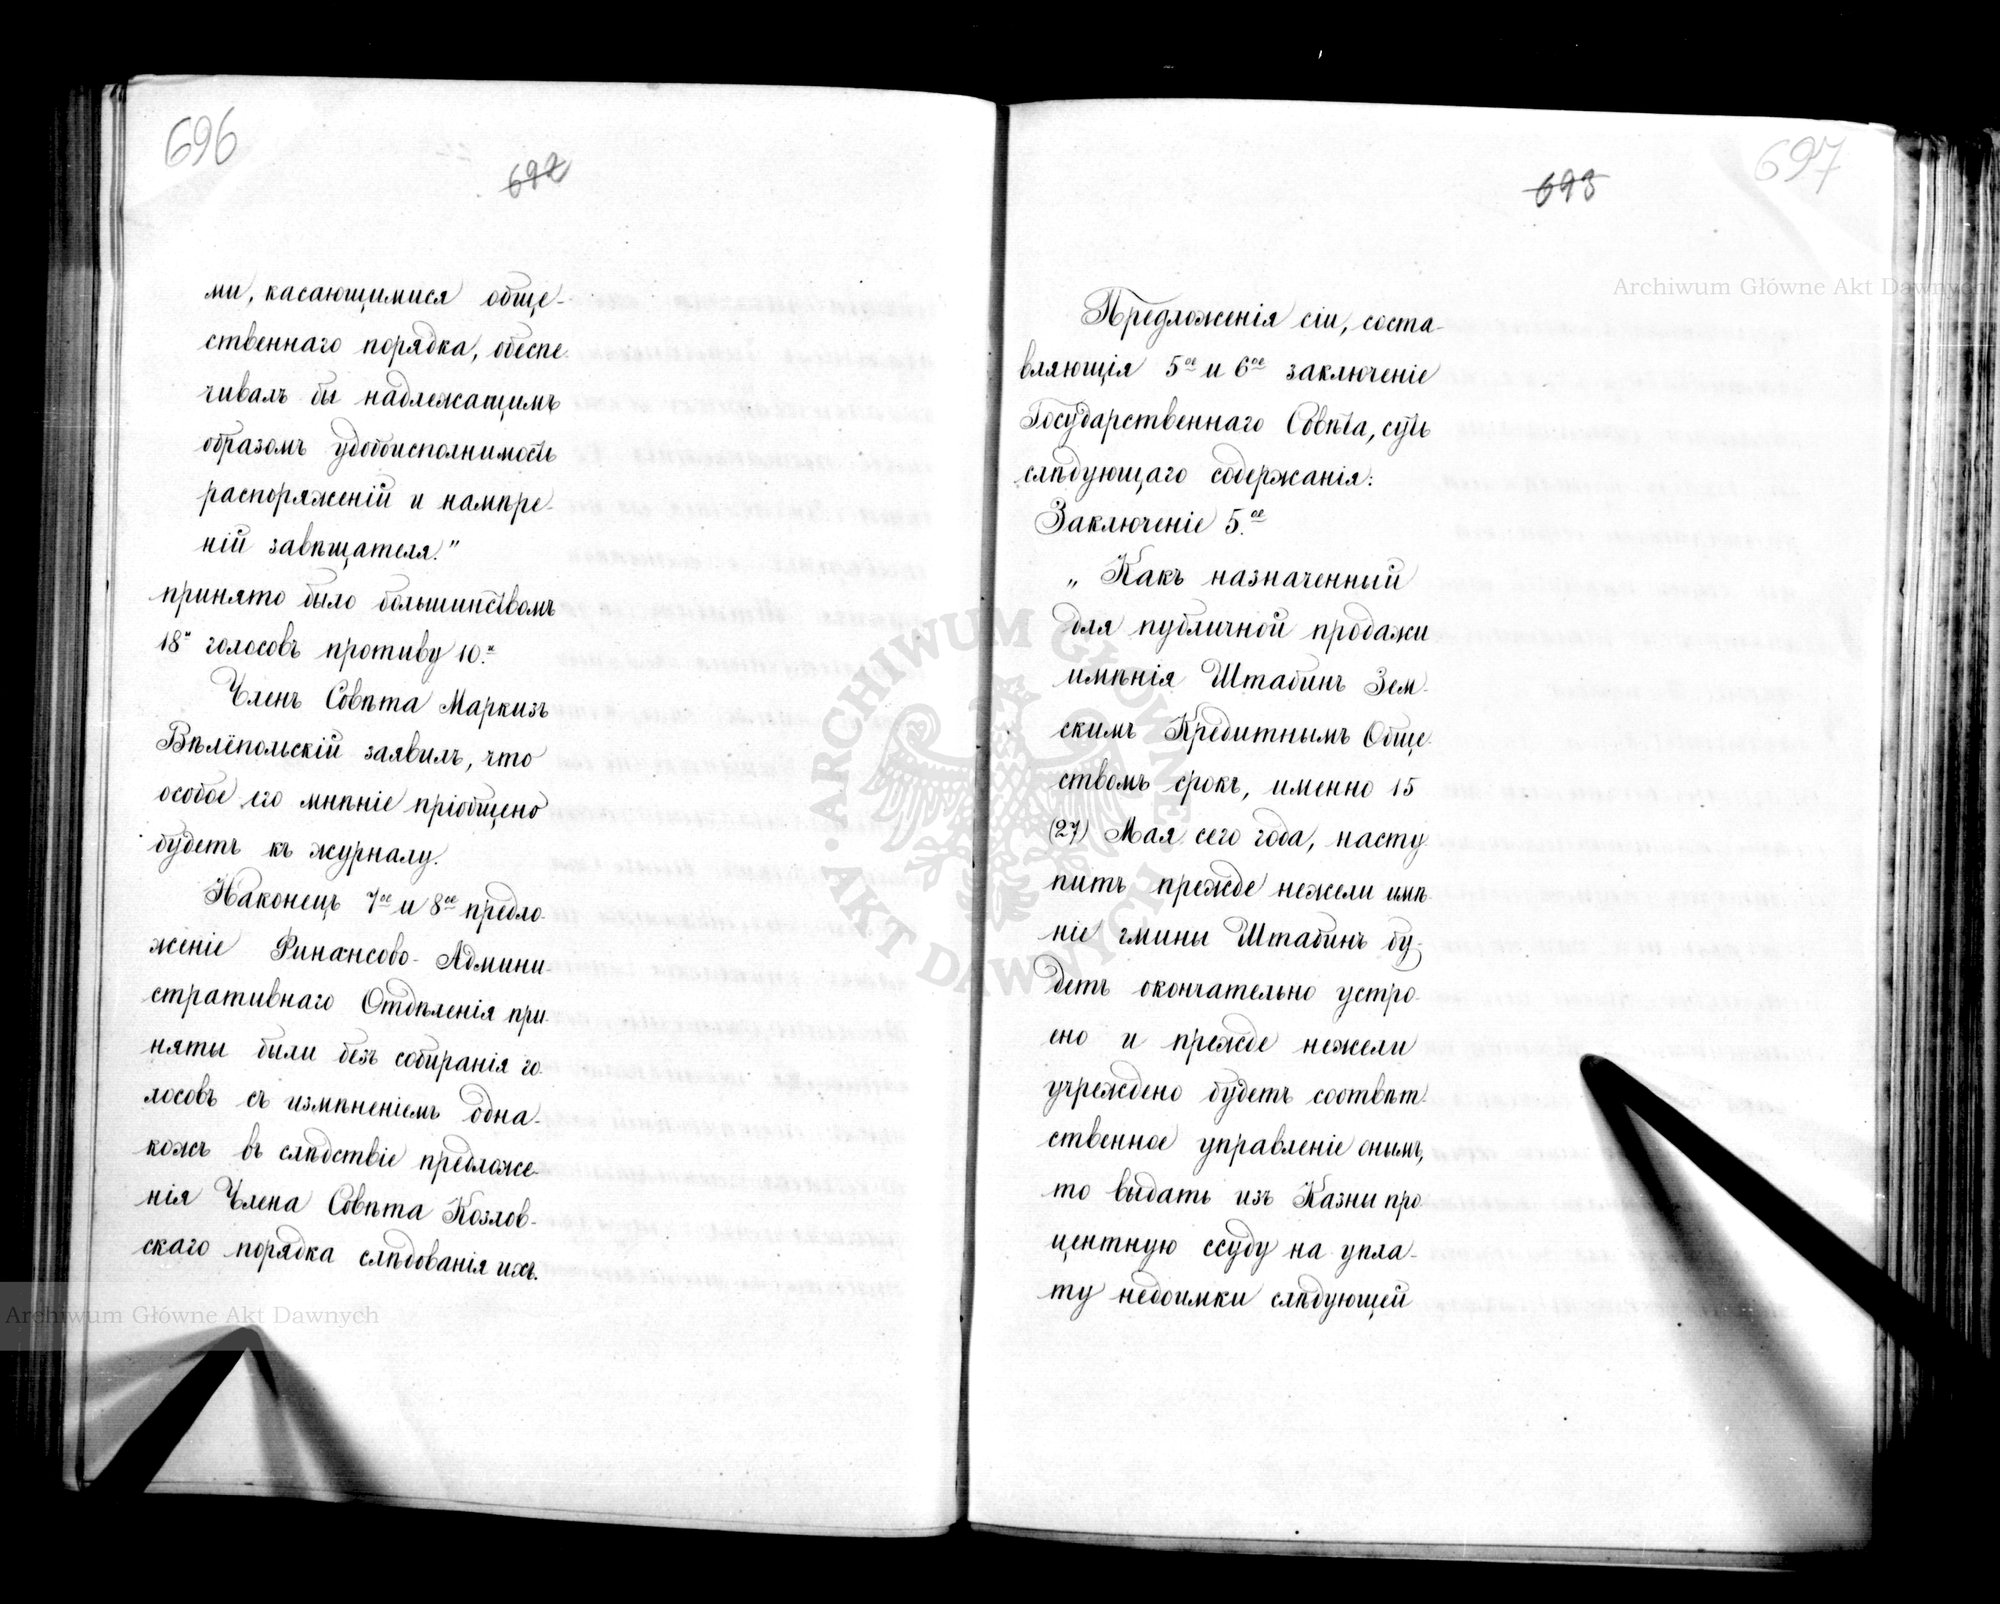 696
692
ми, касающимися обще-
ственнаго порядка, обезпе-
чивалъ бы надлежащимъ
образомъ удобоисполнимость
распоряженій и намѣре-
ній завѣщателя."
принято было большинствомъ
18ʺ голосовъ противу 10.ʺ
Членъ Совѣта Маркизъ
Вѣлёпольскій заявилъ, что
особое его мнѣніе пріобщено
будетъ къ журналу.
Наконецъ 7ое и 8ое предло-
женіе Финансово-Админи-
стративнаго Отдѣленія при-
няты были безъ собиранія го-
лосовъ съ измѣненіемъ одна-
кожъ въ слѣдствіе предложе-
нія Члена Совѣта Козлов-
скаго порядка слѣдованія ихъ.
Archiwum Główne Akt Dawnych
697
693
Archiwum Główne Akt Dawnych
Предложенія сіи, соста-
вляющія 5ое и 6ое заключеніе
Государственнаго Совѣта, суть
слѣдующаго содержанія:
Заключеніе 5.ое
„Какъ назначенный
для публичной продажи
имѣнія Штабинъ Зем-
скимъ Кредитнымъ Обще-
ствомъ срокъ, именно 15
(27) Мая сего года, насту-
питъ прежде нежели имѣ-
ніе гмины Штабинъ бу-
детъ окончательно устро-
ено и прежде нежели
учреждено будетъ соотвѣт-
ственное управленіе онымъ,
то выдать изъ Казны про-
центную ссуду на упла-
ту недоимки слѣдующей
ARCHIWUM GŁÓWNE AKT DAWNYCH